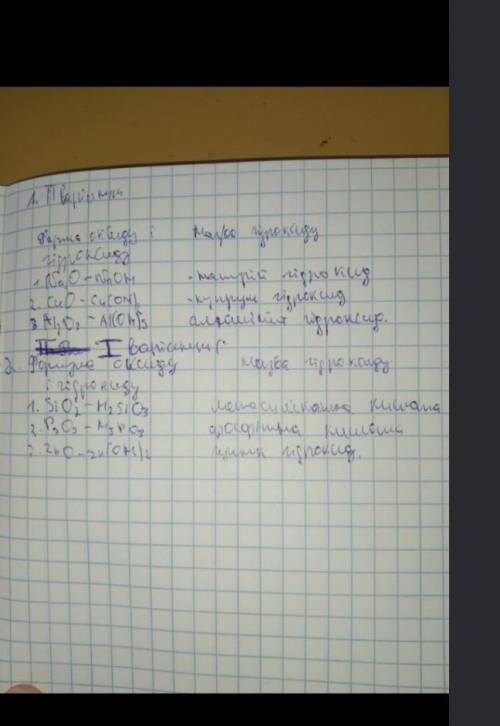 1. II варіант
Формула оксиду і Назва гідроксиду
гідроксиду
1. Na2O - NaOH - натрій гідроксид
2. CuO - Cu(OH)2 - купрум гідроксид
3. Al2O3 - Al(OH)3 алюміній гідроксид.
I варіант
2. Формула оксиду Назва гідроксиду
і гідроксиду
1. SiO2 - H2SiO3 метасилікатна кислота
2. P2O3 - H3PO3 фосфітна кислота
3. ZnO - Zn(OH)2 цинк гідроксид.